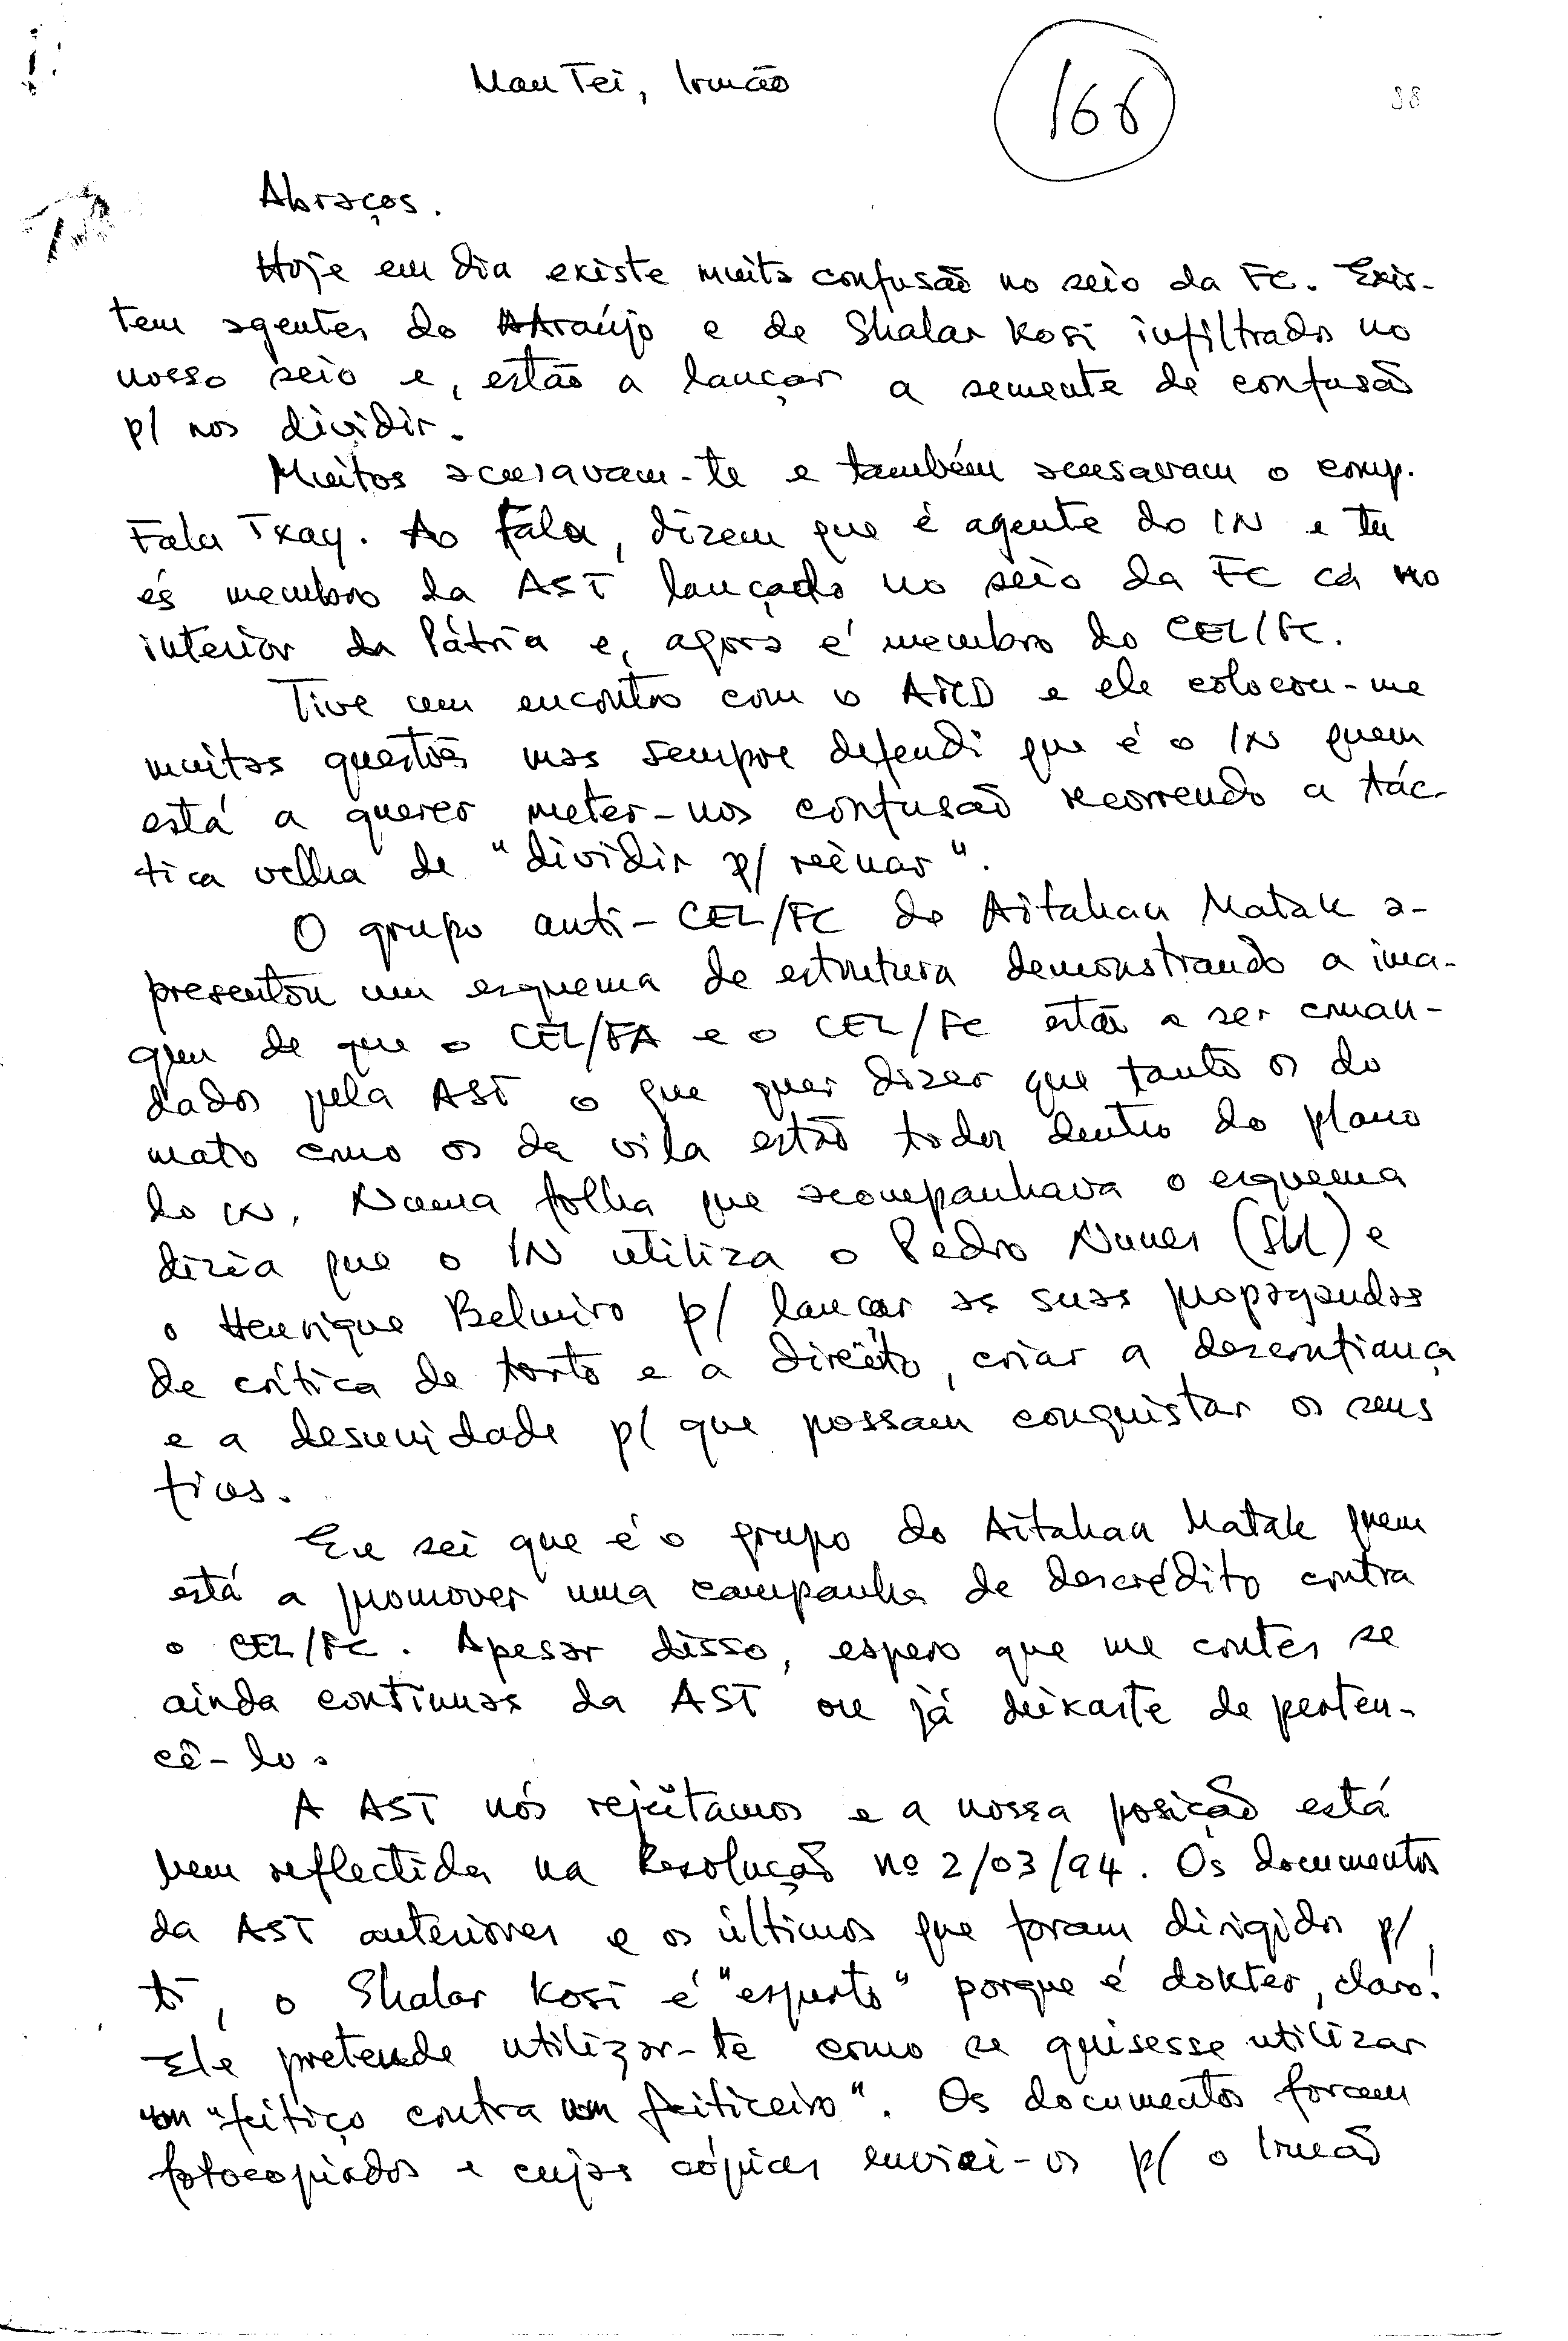 Mau Tei, Irmão
166
38
Abraços.
Hoje em dia existe muita confusão no seio da FC. Exis-
tem agentes do AAraújo e de Shalar Kosi infiltrados no
nosso seio e, estão a lançar a semente de confusão
p/ nos dividir.
Muitos acusavam-te e também acusavam o comp.
Falu Txay. Ao Falu, dizem que é agente do IN e tu
és membro da AST lançado no seio da FC cá no
interior da Pátria e, agora é membro do CEL/FC.
Tive um encontro com o e ele colocou-me
muitas questões mas sempre defendi que é o IN quem
está a querer meter-nos confusão recorrendo a tác-
tica velha de "dividir p/ reinar".
O grupo anti-CEL/FC do Aitahan Matak a-
presentou um esquema de estrutura demonstrando a ima-
gem de que o CEL/FA e o CEL/FC estão a ser coman-
dados pela AST o que quer dizer que tanto os do
mato como os da vila estão todos dentro do plano
do IN. Numa folha que acompanhava o esquema
dizia que o IN utiliza o Pedro Nunes (SM) e
o Henrique Belmiro p/ lançar as suas propagandas
de crítica de torto e a direito, criar a desconfiança
e a desunidade p/ que possam conquistar os seus
fins.
Eu sei que é o grupo do Aitahan Matak quem
está a promover uma campanha de descrédito contra
o CEL/FC. Apesar disso, espero que me contes se
ainda continuas da AST ou já deixaste de perten-
cê-lo.
A AST nós rejeitamos e a nossa posição está
bem reflectida na Resolução nº 2/03/94. Os documentos
da AST anteriores e os últimos que foram dirigidos p/
ti, o Shalar Kosi é "esperto" porque é dokter, claro!
Ele pretende utilizar-te como se quisesse utilizar
um "feitiço contra um feiticeiro". Os documentos foram
fotocopiados e cujas cópias enviei-os p/ o Irmão